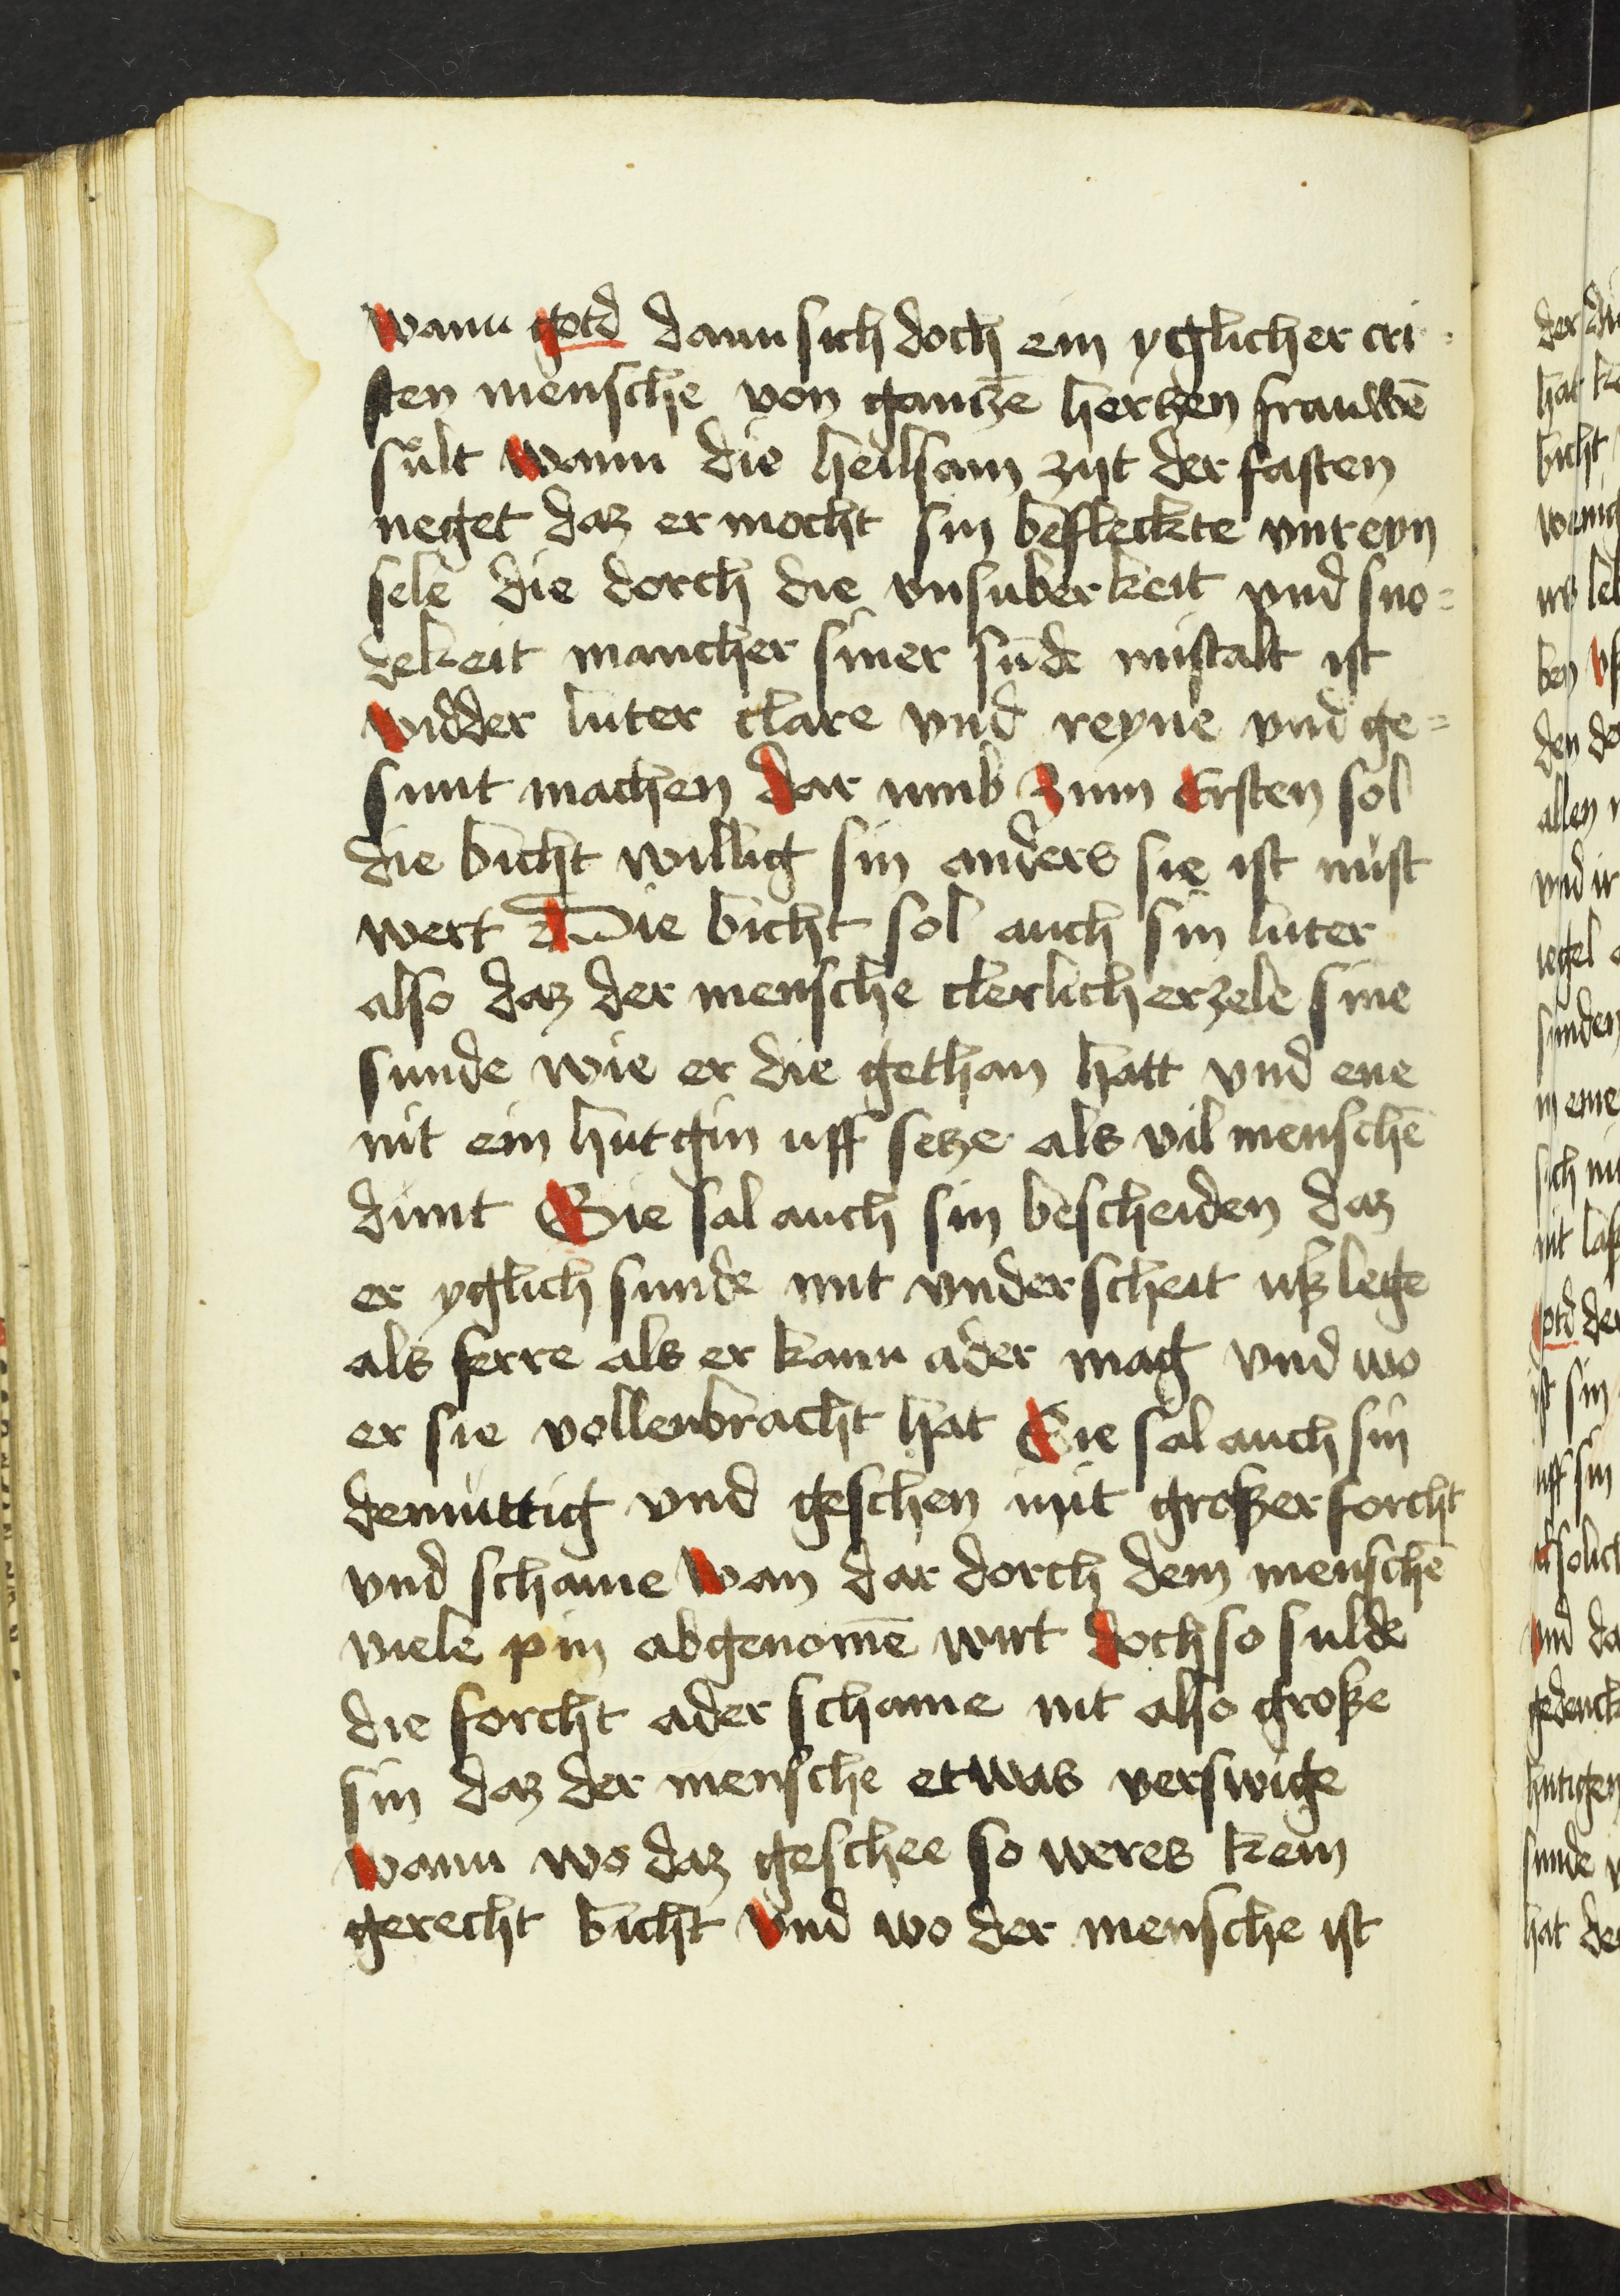 wann gotd dann sich doch ein yglicher cri-
sten mensche von gancze hertzen frauwē
sult wann die heilsam zijt der fasten
neget daz er mocht sin befleckte vnreyn
sele die dorch die vnsuberkeit vnd sno=
dekeit mancher siner sūde mistalt ist
widder luter clare vnd reyne vnd ge=
sunt machen dar umb Zum Ersten sol
die bicht willig sin anders sie ist nust
wert Die bicht sol auch sin luter
also daz der mensche clerlich erzele sine
sunde wie er die gethan hatt vnd ene
nit ein hutgin uff setze als vil menschē
dunt Sie sal auch sin bescheiden daz
er yglich sunde mit vnderscheit ußlege
als ferre als er kann ader mag vnd wo
er sie vollenbracht hat Sie sal auch sin
demuttig vnd geschen mit großer forcht
vnd schame wan dar dorch dem menschē
viele pin abgenomē wirt doch so sulde
die forcht ader schame nit also große
sin daz der mensche etwas verswige
wann wo daz geschee so weres kein
gerecht bicht vnd wo der mensche ist